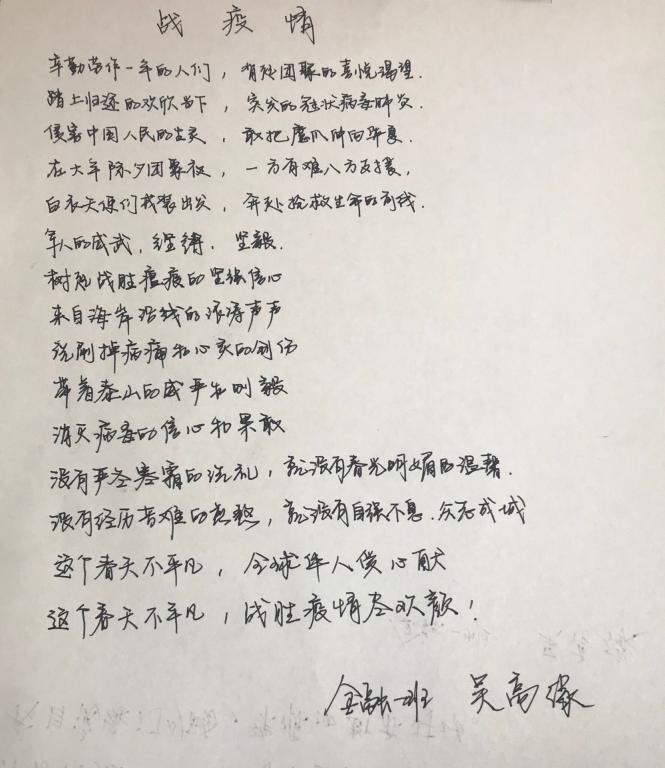 战疫情
辛勤劳作一年的人们，有残团聚的喜悦渴望.
踏上归途的欢欣当下，突发的冠状病毒肺炎.
侵害中国人民的生灵，敢把魔爪伸向华夏.
在大年除夕团聚夜，一方有难八方支援，
白衣天使们我装出发，奔赴抢救生命的前线.
军人的威武，坚毅.
树起战胜瘟疫的坚强信心
来自海岸沿线的浪涛声声
洗刷掉病痛和心灵的创伤
带着泰山的威严和刚毅
消灭病毒的信心和果敢
没有严冬寒霜的洗礼，就没有春光明媚的温馨.
没有经历苦难的，就没有自强不息.众志成城
这个春天不平凡，全球华人
这个春天不平凡，战胜疫情尽欢颜！
金融一班 吴高